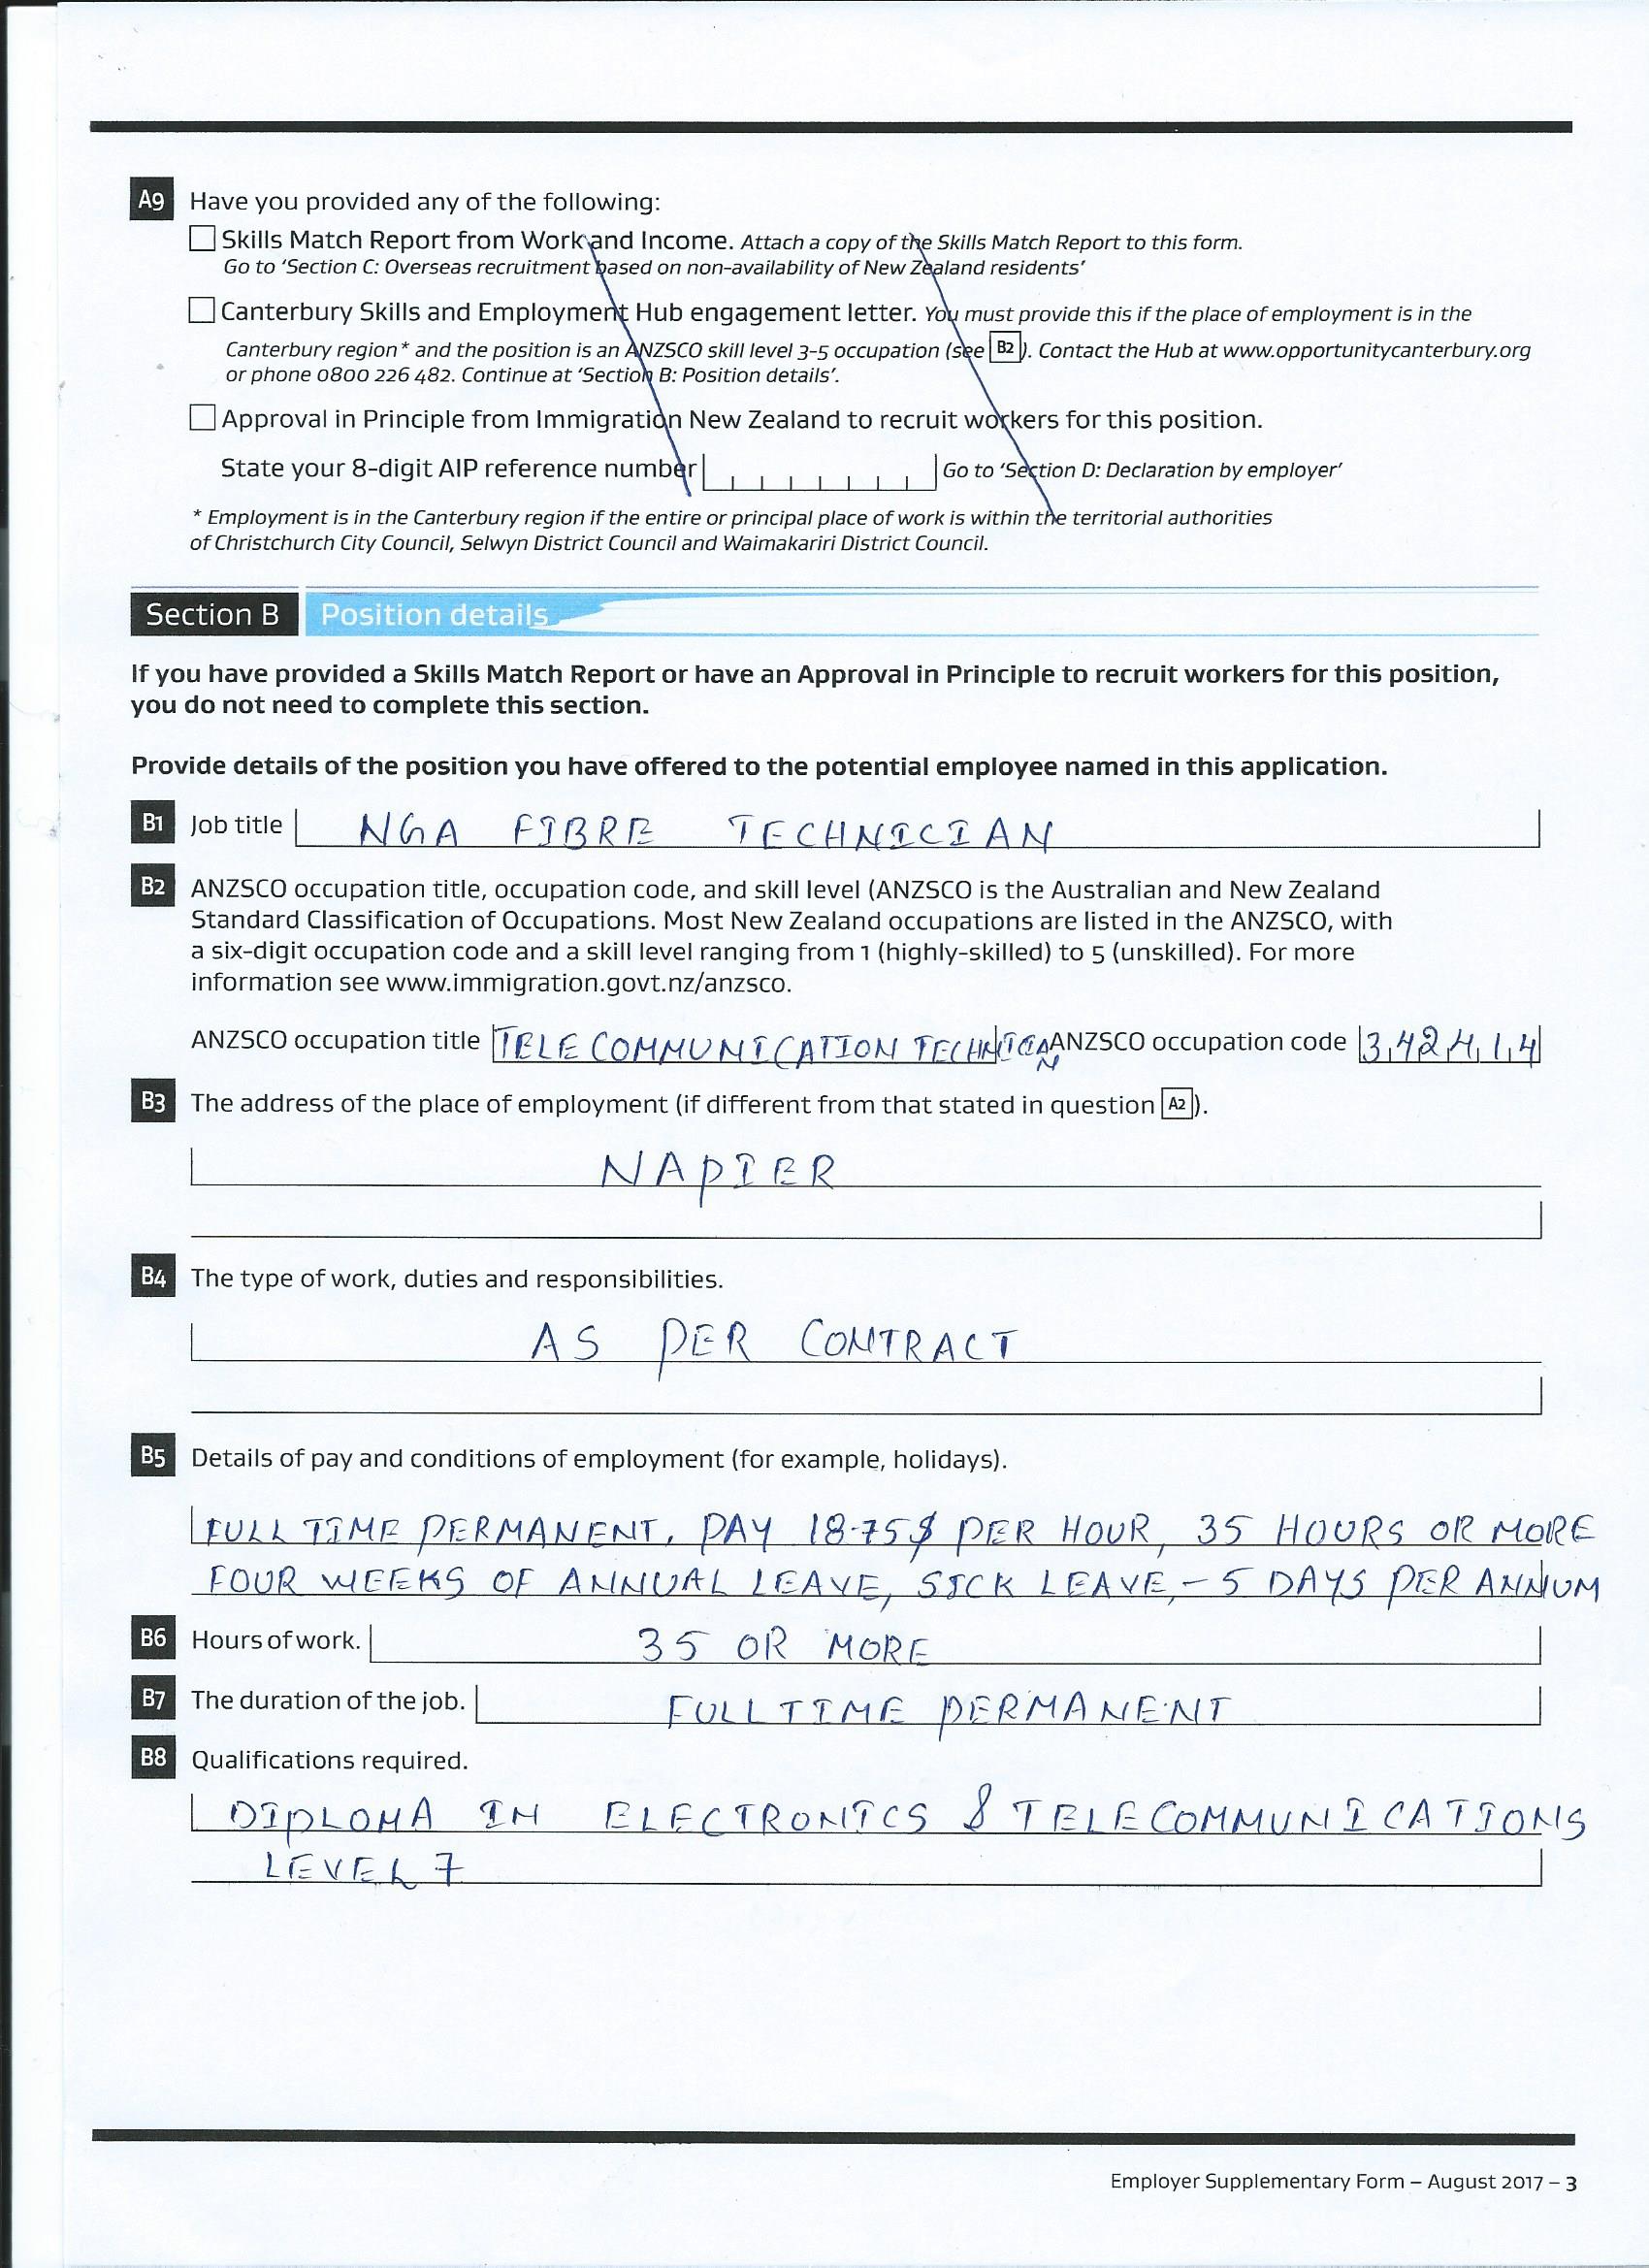 A9 Have you provided any of the following:
Skills Match Report from Work and Income. Attach a copy of the Skills Match Report to this form.
Go to ‘Section C: Overseas recruitment based on non-availability of New Zealand residents’
Canterbury Skills and Employment Hub engagement letter. You must provide this if the place of employment is in the
Canterbury region* and the position is an ANZSCO skill level 3-5 occupation (see B2). Contact the Hub at www.opportunitycanterbury.org
or phone 0800 226 482. Continue at ‘Section B: Position details’.
Approval in Principle from Immigration New Zealand to recruit workers for this position.
State your 8-digit AIP reference number Go to ‘Section D: Declaration by employer’
* Employment is in the Canterbury region if the entire or principal place of work is within the territorial authorities
of Christchurch City Council, Selwyn District Council and Waimakariri District Council.
Section B Position details
If you have provided a Skills Match Report or have an Approval in Principle to recruit workers for this position,
you do not need to complete this section.
Provide details of the position you have offered to the potential employee named in this application.
B1 Job title NGA FIBRE TECHNICIAN
B2 ANZSCO occupation title, occupation code, and skill level (ANZSCO is the Australian and New Zealand
Standard Classification of Occupations. Most New Zealand occupations are listed in the ANZSCO, with
a six-digit occupation code and a skill level ranging from 1 (highly-skilled) to 5 (unskilled). For more
information see www.immigration.govt.nz/anzsco.
ANZSCO occupation title TELECOMMUNICATION TECHNICIAN ANZSCO occupation code 342414
B3 The address of the place of employment (if different from that stated in question A2).
NAPIER
B4 The type of work, duties and responsibilities.
AS PER CONTRACT
B5 Details of pay and conditions of employment (for example, holidays).
FULL TIME PERMANENT. PAY 18.75$ PER HOUR, 35 HOURS OR MORE
FOUR WEEKS OF ANNUAL LEAVE, SICK LEAVE - 5 DAYS PER ANNUM
B6 Hours of work. 35 OR MORE
B7 The duration of the job. FULL TIME PERMANENT
B8 Qualifications required.
DIPLOMA IN ELECTRONICS & TELECOMMUNICATIONS
LEVEL 7
Employer Supplementary Form – August 2017 – 3